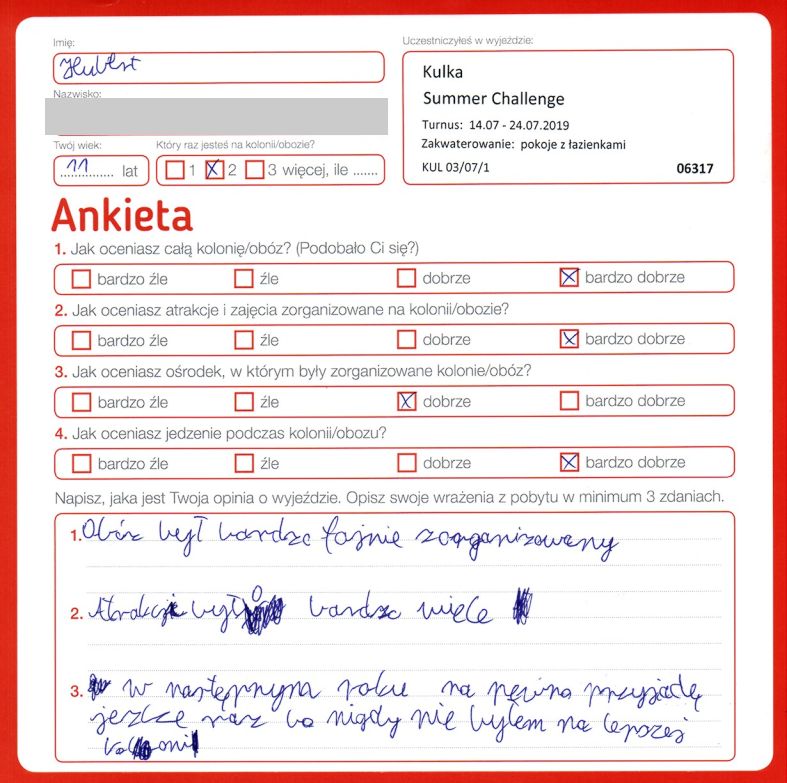 Imię:
Hubert
Nazwisko:
Twój wiek:
11 lat
Który raz jesteś na kolonii/obozie?
1 X 2 3 więcej, ile .......
Uczestniczyłeś w wyjeździe:
Kulka
Summer Challenge
Turnus: 14.07 - 24.07.2019
Zakwaterowanie: pokoje z łazienkami
KUL 03/07/1 06317
Ankieta
1. Jak oceniasz całą kolonię/obóz? (Podobało Ci się?)
bardzo źle źle dobrze X bardzo dobrze
2. Jak oceniasz atrakcje i zajęcia zorganizowane na kolonii/obozie?
bardzo źle źle dobrze X bardzo dobrze
3. Jak oceniasz ośrodek, w którym były zorganizowane kolonie/obóz?
bardzo źle źle X dobrze bardzo dobrze
4. Jak oceniasz jedzenie podczas kolonii/obozu?
bardzo źle źle dobrze X bardzo dobrze
Napisz, jaka jest Twoja opinia o wyjeździe. Opisz swoje wrażenia z pobytu w minimum 3 zdaniach.
1. Obóz był bardzo fajnie zorganizowany
2. Atrakcji było bardzo wiele
3. w następnym roku na pewno przyjadę
jeszcze raz bo nigdy nie byłem na lepszej